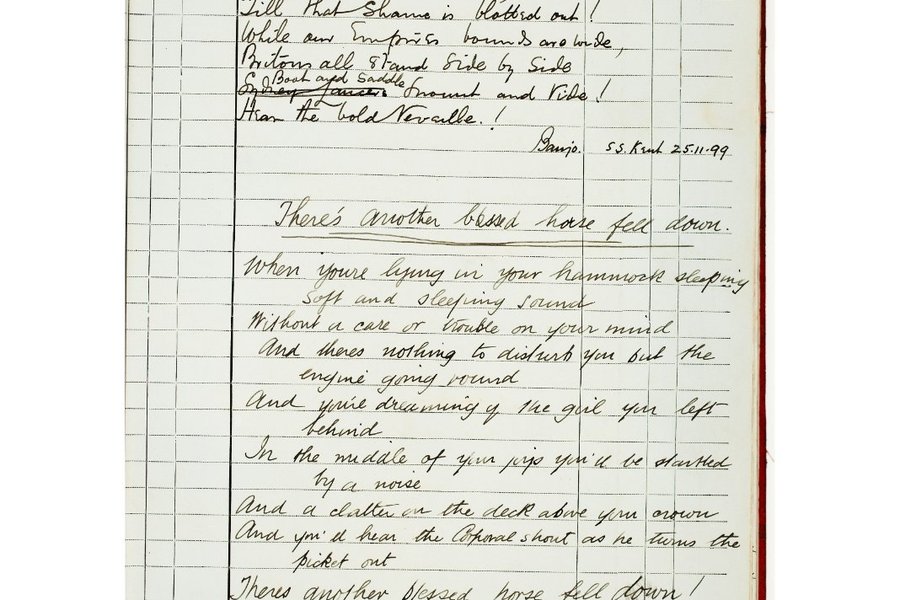 Till that Shame is blotted out!
While our Empires bounds are wide,
Britons all stand Side by Side
Boot and Saddle
Sydney Lancers mount and ride!
Hear the bold Reveille!
Banjo. SS. Kent 25.11.99
There's another blessed horse fell down.
When you're lying in your hammock sleeping
soft and sleeping sound
Without a care or trouble on your mind
And theres nothing to disturb you but the
engine going round
And you're dreaming of the girl you left
behind
In the middle of your joys you'll be startled
by a noise
And a clatter on the deck above your crown
And you'd hear the Corporal shout as he turns the
picket out
Theres another blessed horse fell down!